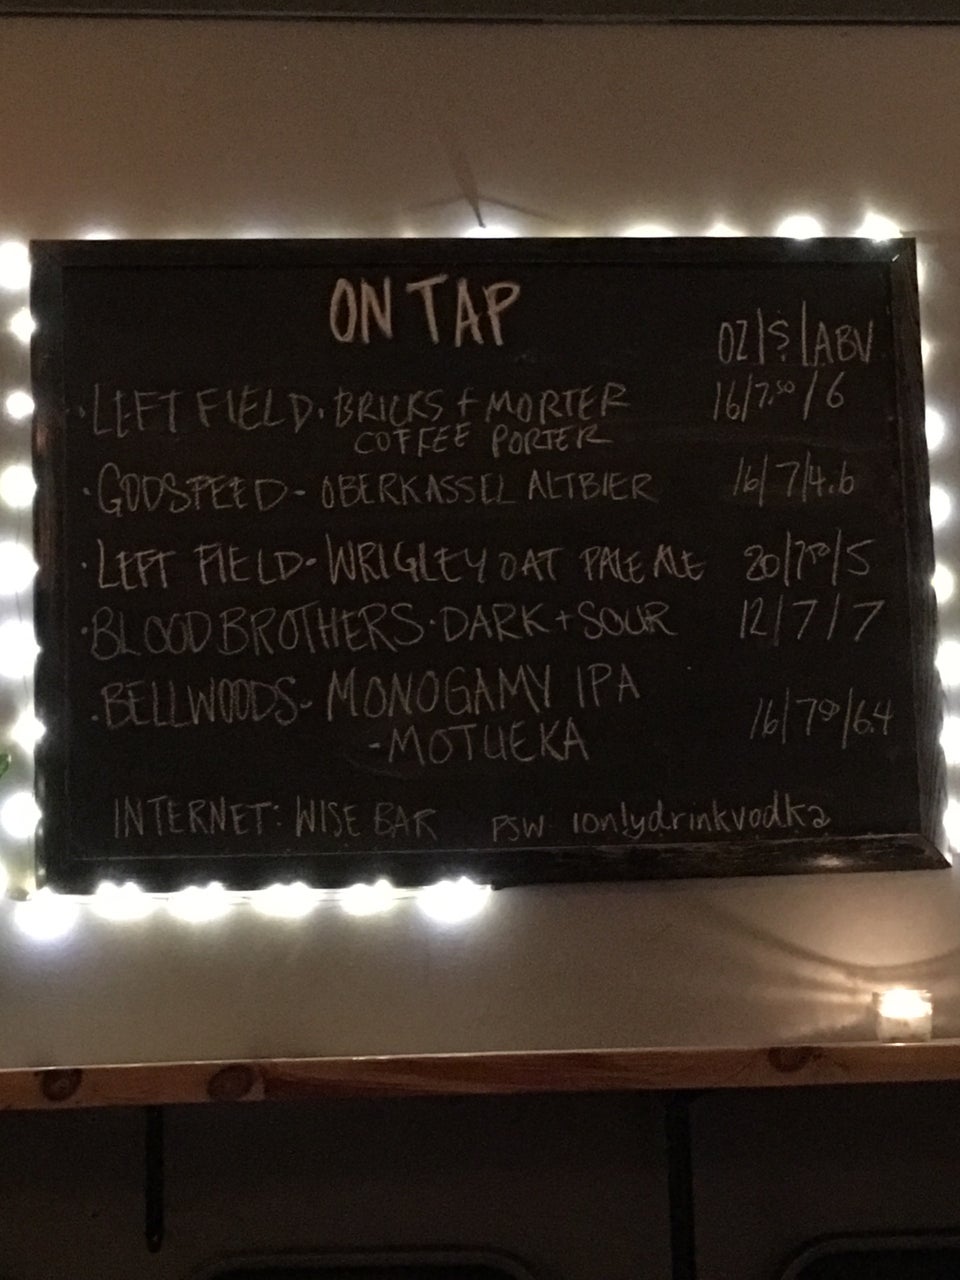 ON TAP
OZ | $ | ABV
· LEFT FIELD · BRICKS + MORTER 16/7.50/6
COFFEE PORTER
· GODSPEED - OBERKASSEL ALTBIER 16/7/4.6
· LEFT FIELD - WRIGLEY OAT PALE ALE 20/7.50/5
· BLOOD BROTHERS · DARK + SOUR 12/7/7
· BELLWOODS - MONOGAMY IPA
- MOTUEKA 16/7/6.4
INTERNET: WISE BAR PSW ionlydrinkvodka